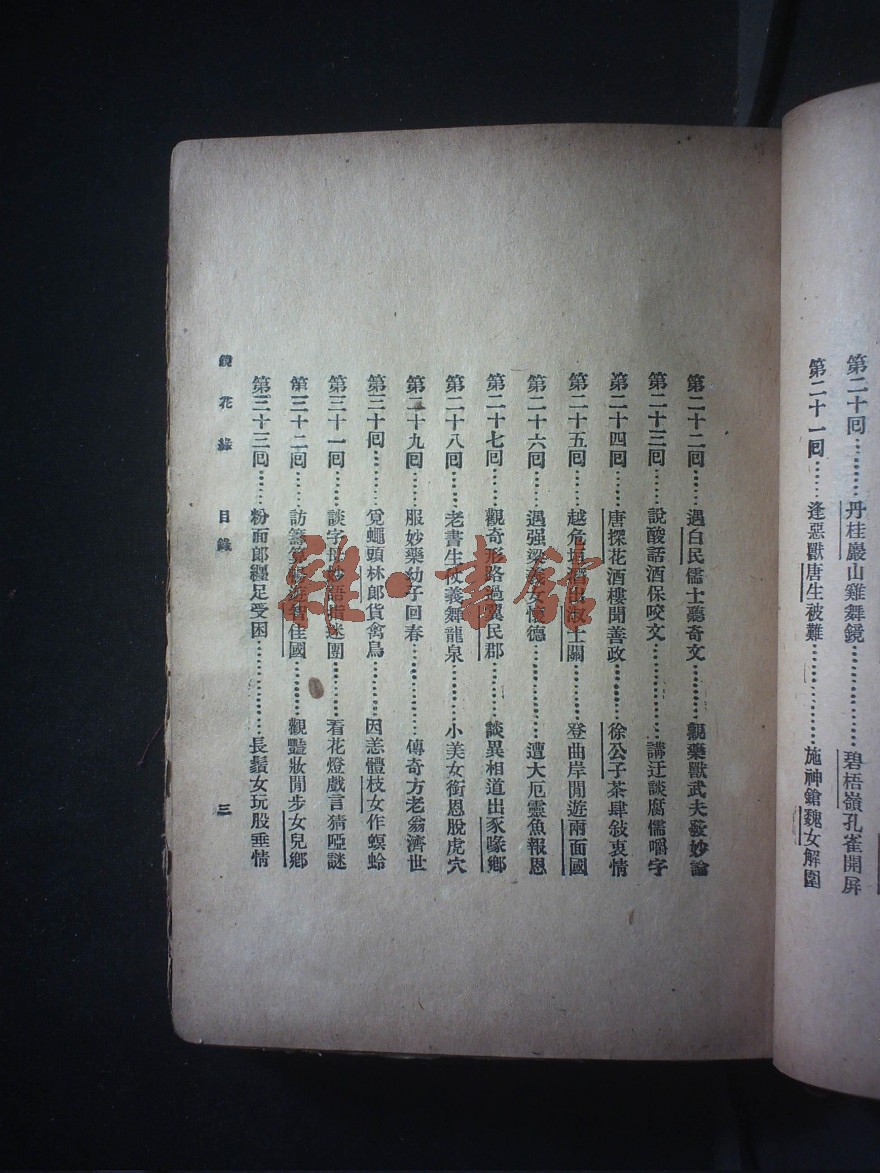 第二十回………丹桂巖山雞舞鏡………………碧梧嶺孔雀開屏
第二十一回……逢惡獸唐生被難………………施神鎗魏女解圍
第二十二回……遇白民儒士聽奇文……………觀藥獸武夫發妙論
第二十三回……說酸話酒保咬文………………講迂談腐儒嚼字
第二十四回……唐探花酒樓聞善政……………徐公子茶肆敍衷情
第二十五回……越危垣酒出淑士關……………登曲岸閒遊兩面國
第二十六回……遇强梁義女懷德………………遭大厄靈魚報恩
第二十七回……觀奇形路過翼民郡……………談異相道出豕喙鄉
第二十八回……老書生仗義舞龍泉……………小美女銜恩脫虎穴
第二十九回……服妙藥幼子回春………………傳奇方老翁濟世
第三十回………覓蠅頭林郎貨禽鳥……………因恙體枝女作螟蛉
第三十一回……談字母妙語指迷團……………看花燈戲言猜啞謎
第三十二回……訪籌算暢遊智佳國……………觀豔妝閒步女兒鄉
第三十三回……粉面郎纏足受困………………長鬚女玩股垂情
鏡花緣 目錄 三
雜·書館